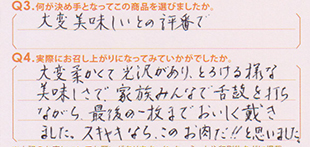 Q3.何が決め手となってこの商品を選びましたか。
大変美味しいとの評番で
Q4.実際にお召し上がりになってみていかがでしたか。
大変柔かくて光沢があり、とろける様な
美味しさで、家族みんなで舌鼓を打ち
ながら、最後の一枚までおいしく戴き
ました。スキヤキなら、このお肉だ!!と思いました。